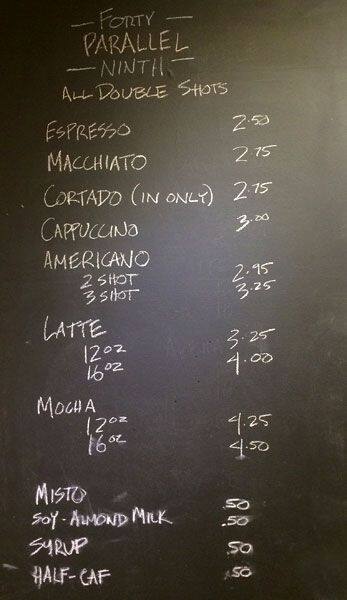 — FORTY —
PARALLEL
— NINTH —
ALL DOUBLE SHOTS
ESPRESSO 2.50
MACCHIATO 2.75
CORTADO (IN ONLY) 2.75
CAPPUCCINO 3.00
AMERICANO
2 SHOT 2.95
3 SHOT 3.25
LATTE
12oz 3.25
16oz 4.00
MOCHA
12oz 4.25
16oz 4.50
MISTO .50
SOY-ALMOND MILK .50
SYRUP .50
HALF-CAF .50